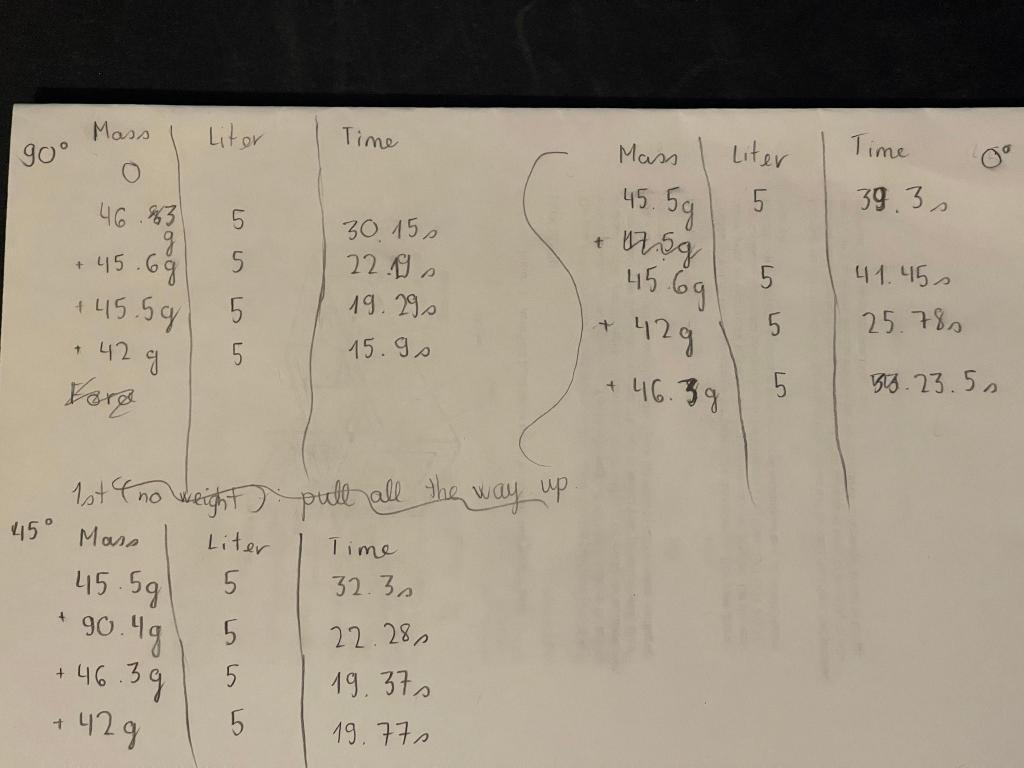 90° Mass Liter Time
0
46.33 g 5 30.15s
+ 45.6g 5 22.19s
+ 45.5g 5 19.29s
+ 42 g 5 15.9s
1st (no weight): pull all the way up
Mass Liter Time 0°
45.5g 5 39.3s
+ 45.6g 5 41.45s
+ 42g 5 25.78s
+ 46.3g 5 23.5s
45° Mass Liter Time
45.5g 5 32.3s
+ 90.4g 5 22.28s
+ 46.3g 5 19.37s
+ 42g 5 19.77s